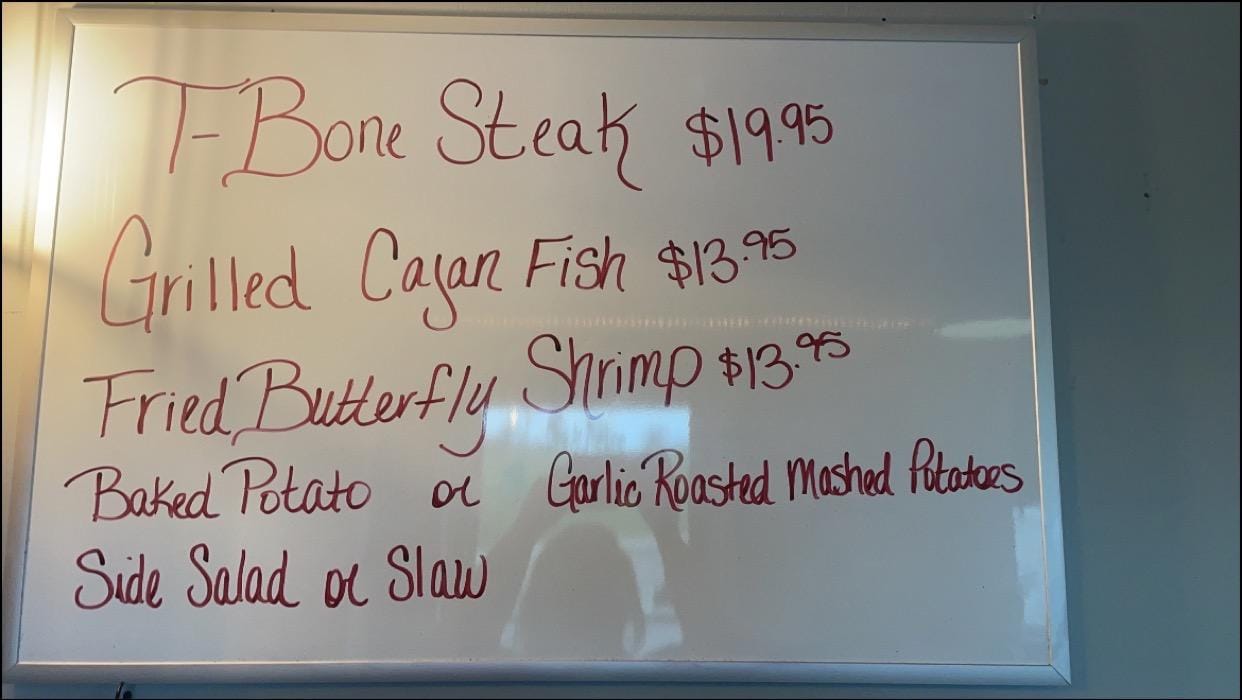 T-Bone Steak $19.95
Grilled Cajan Fish $13.95
Fried Butterfly Shrimp $13.95
Baked Potato or Garlic Roasted Mashed Potatoes
Side Salad or Slaw